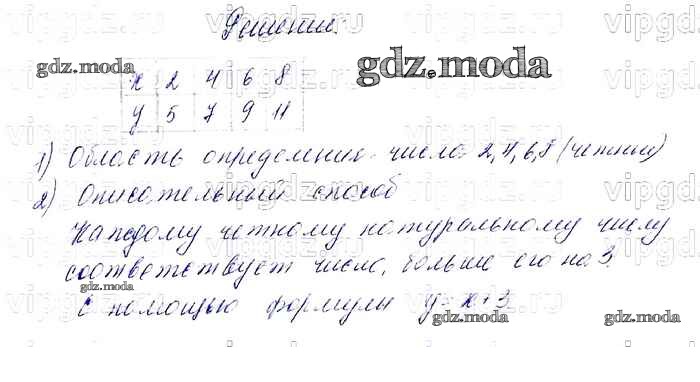 Решение.
gdz.moda
gdz.moda
x 2 4 6 8
y 5 7 9 11
1) Область определения - числа 2, 4, 6, 8 (четные)
2) Описательный способ
Каждому четному натуральному числу
соответствует число, больше его на 3.
С помощью формулы y = x + 3
gdz.moda
gdz.moda